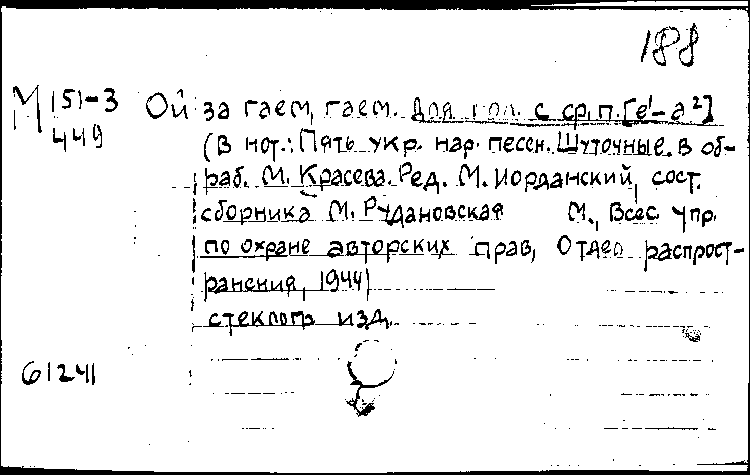 188
М 151-3 Ой за гаем, гаем. Для гол. с ср. п. [e¹-a²]
449 (В нот.: Пять укр. нар. песен. Шуточные. В об-
раб. М. Красева. Ред. М. Иорданский, сост.
сборника М. Рудановская М., Всес. упр.
по охране авторских прав, Отдел распрост-
ранения, 1944)
стеклогр. изд.
61241